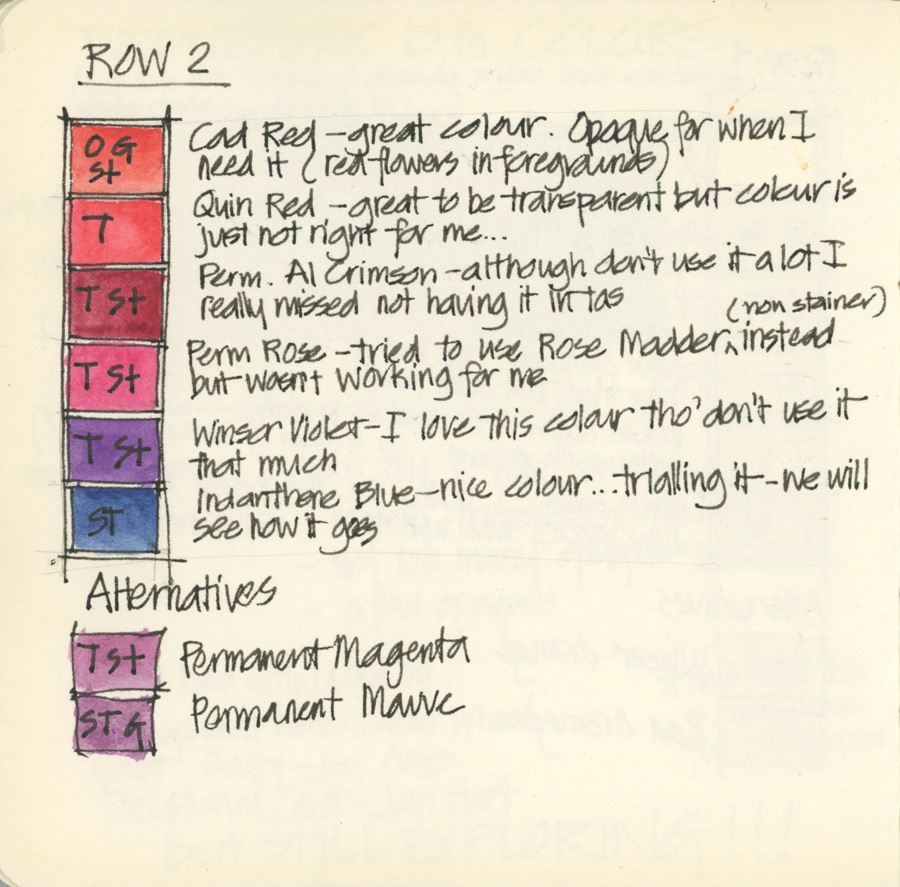 ROW 2
O G
St
Cad Red - great colour. Opaque for when I
need it (red flowers in foregrounds)
T
Quin Red - great to be transparent but colour is
just not right for me...
T St
Perm. Al Crimson - although don't use it a lot I
really missed not having it in tas
(non stainer)
T St
Perm Rose - tried to use Rose Madder ^ instead
but wasn't working for me
T St
Winsor Violet - I love this colour tho' don't use it
that much
ST
Indanthene Blue - nice colour... trialling it - we will
see how it goes
Alternatives
T St
Permanent Magenta
ST G
Permanent Mauve